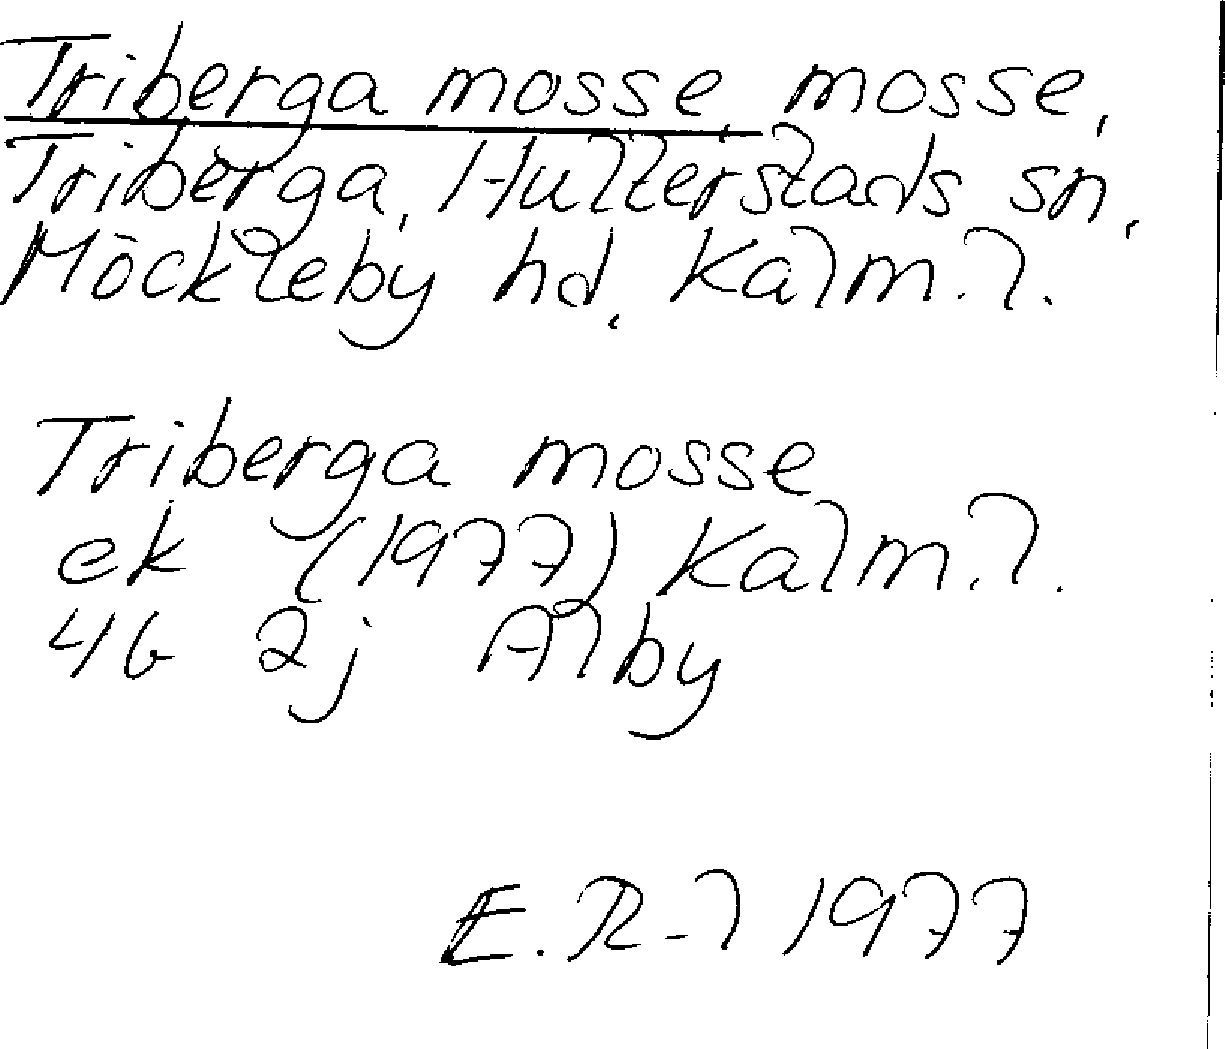 Triberga mosse, mosse,
Triberga, Hulterstads sn,
Möckleby hd, Kalm.l.
Triberga mosse
ek (1977) Kalm.l.
4G 2j Alby
E.R-l 1977